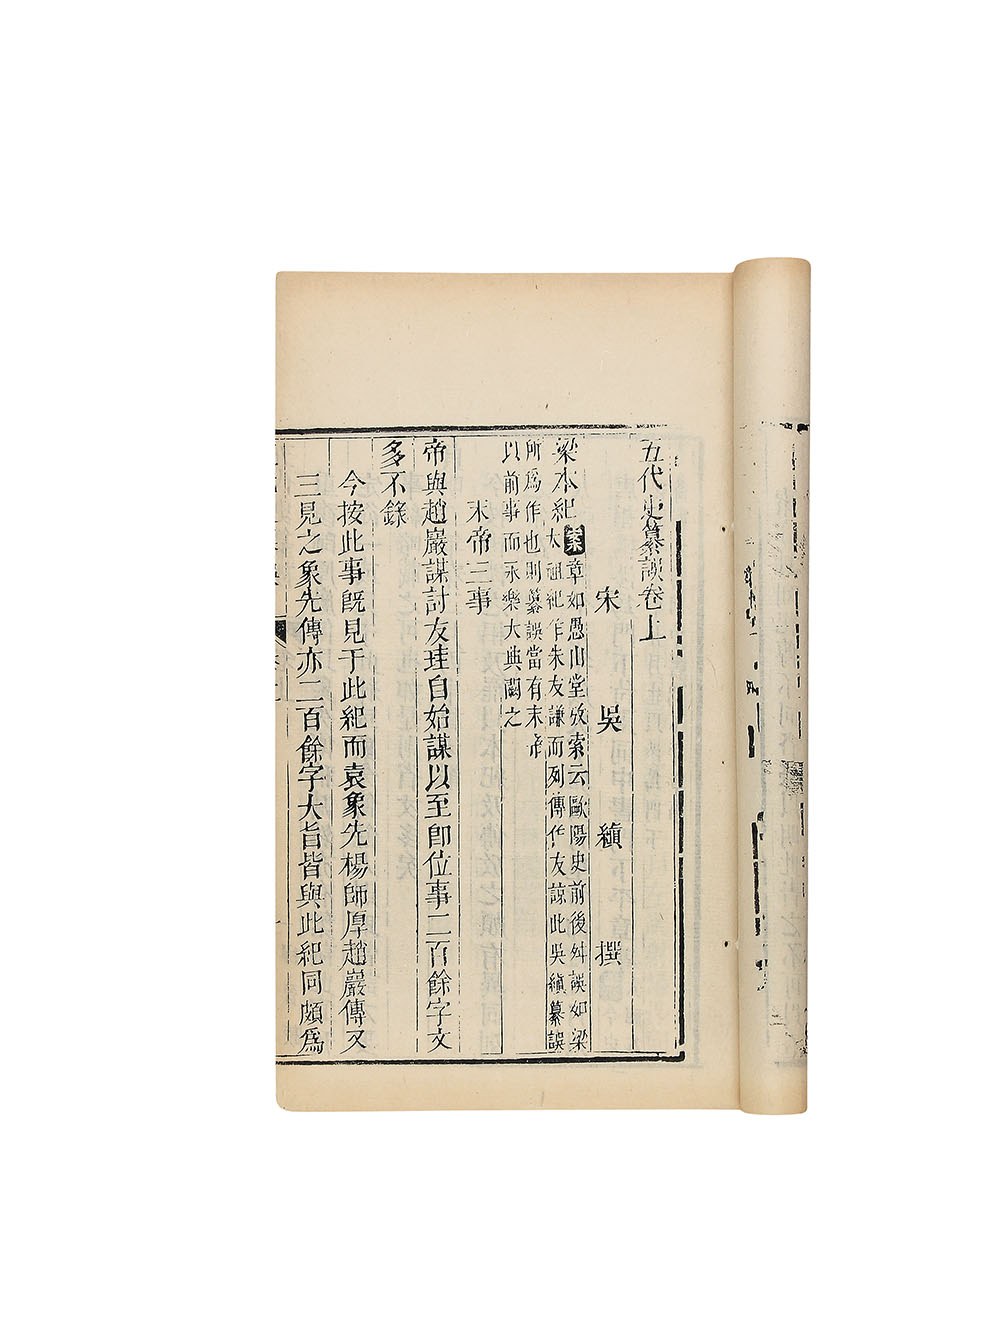 五代史纂誤卷上
宋 吳 縝 撰
梁本紀 案 章如愚山堂攷索云歐陽史前後舛誤如梁
太祖紀作朱友謙而列傳作友諒此吳縝纂誤
所爲作也則纂誤當有末帝
以前事而永樂大典闕之
末帝三事
帝與趙巖謀討友珪自始謀以至卽位事二百餘字文
多不錄
今按此事旣見于此紀而袁象先楊師厚趙巖傳又
三見之象先傳亦二百餘字大旨皆與此紀同頗爲